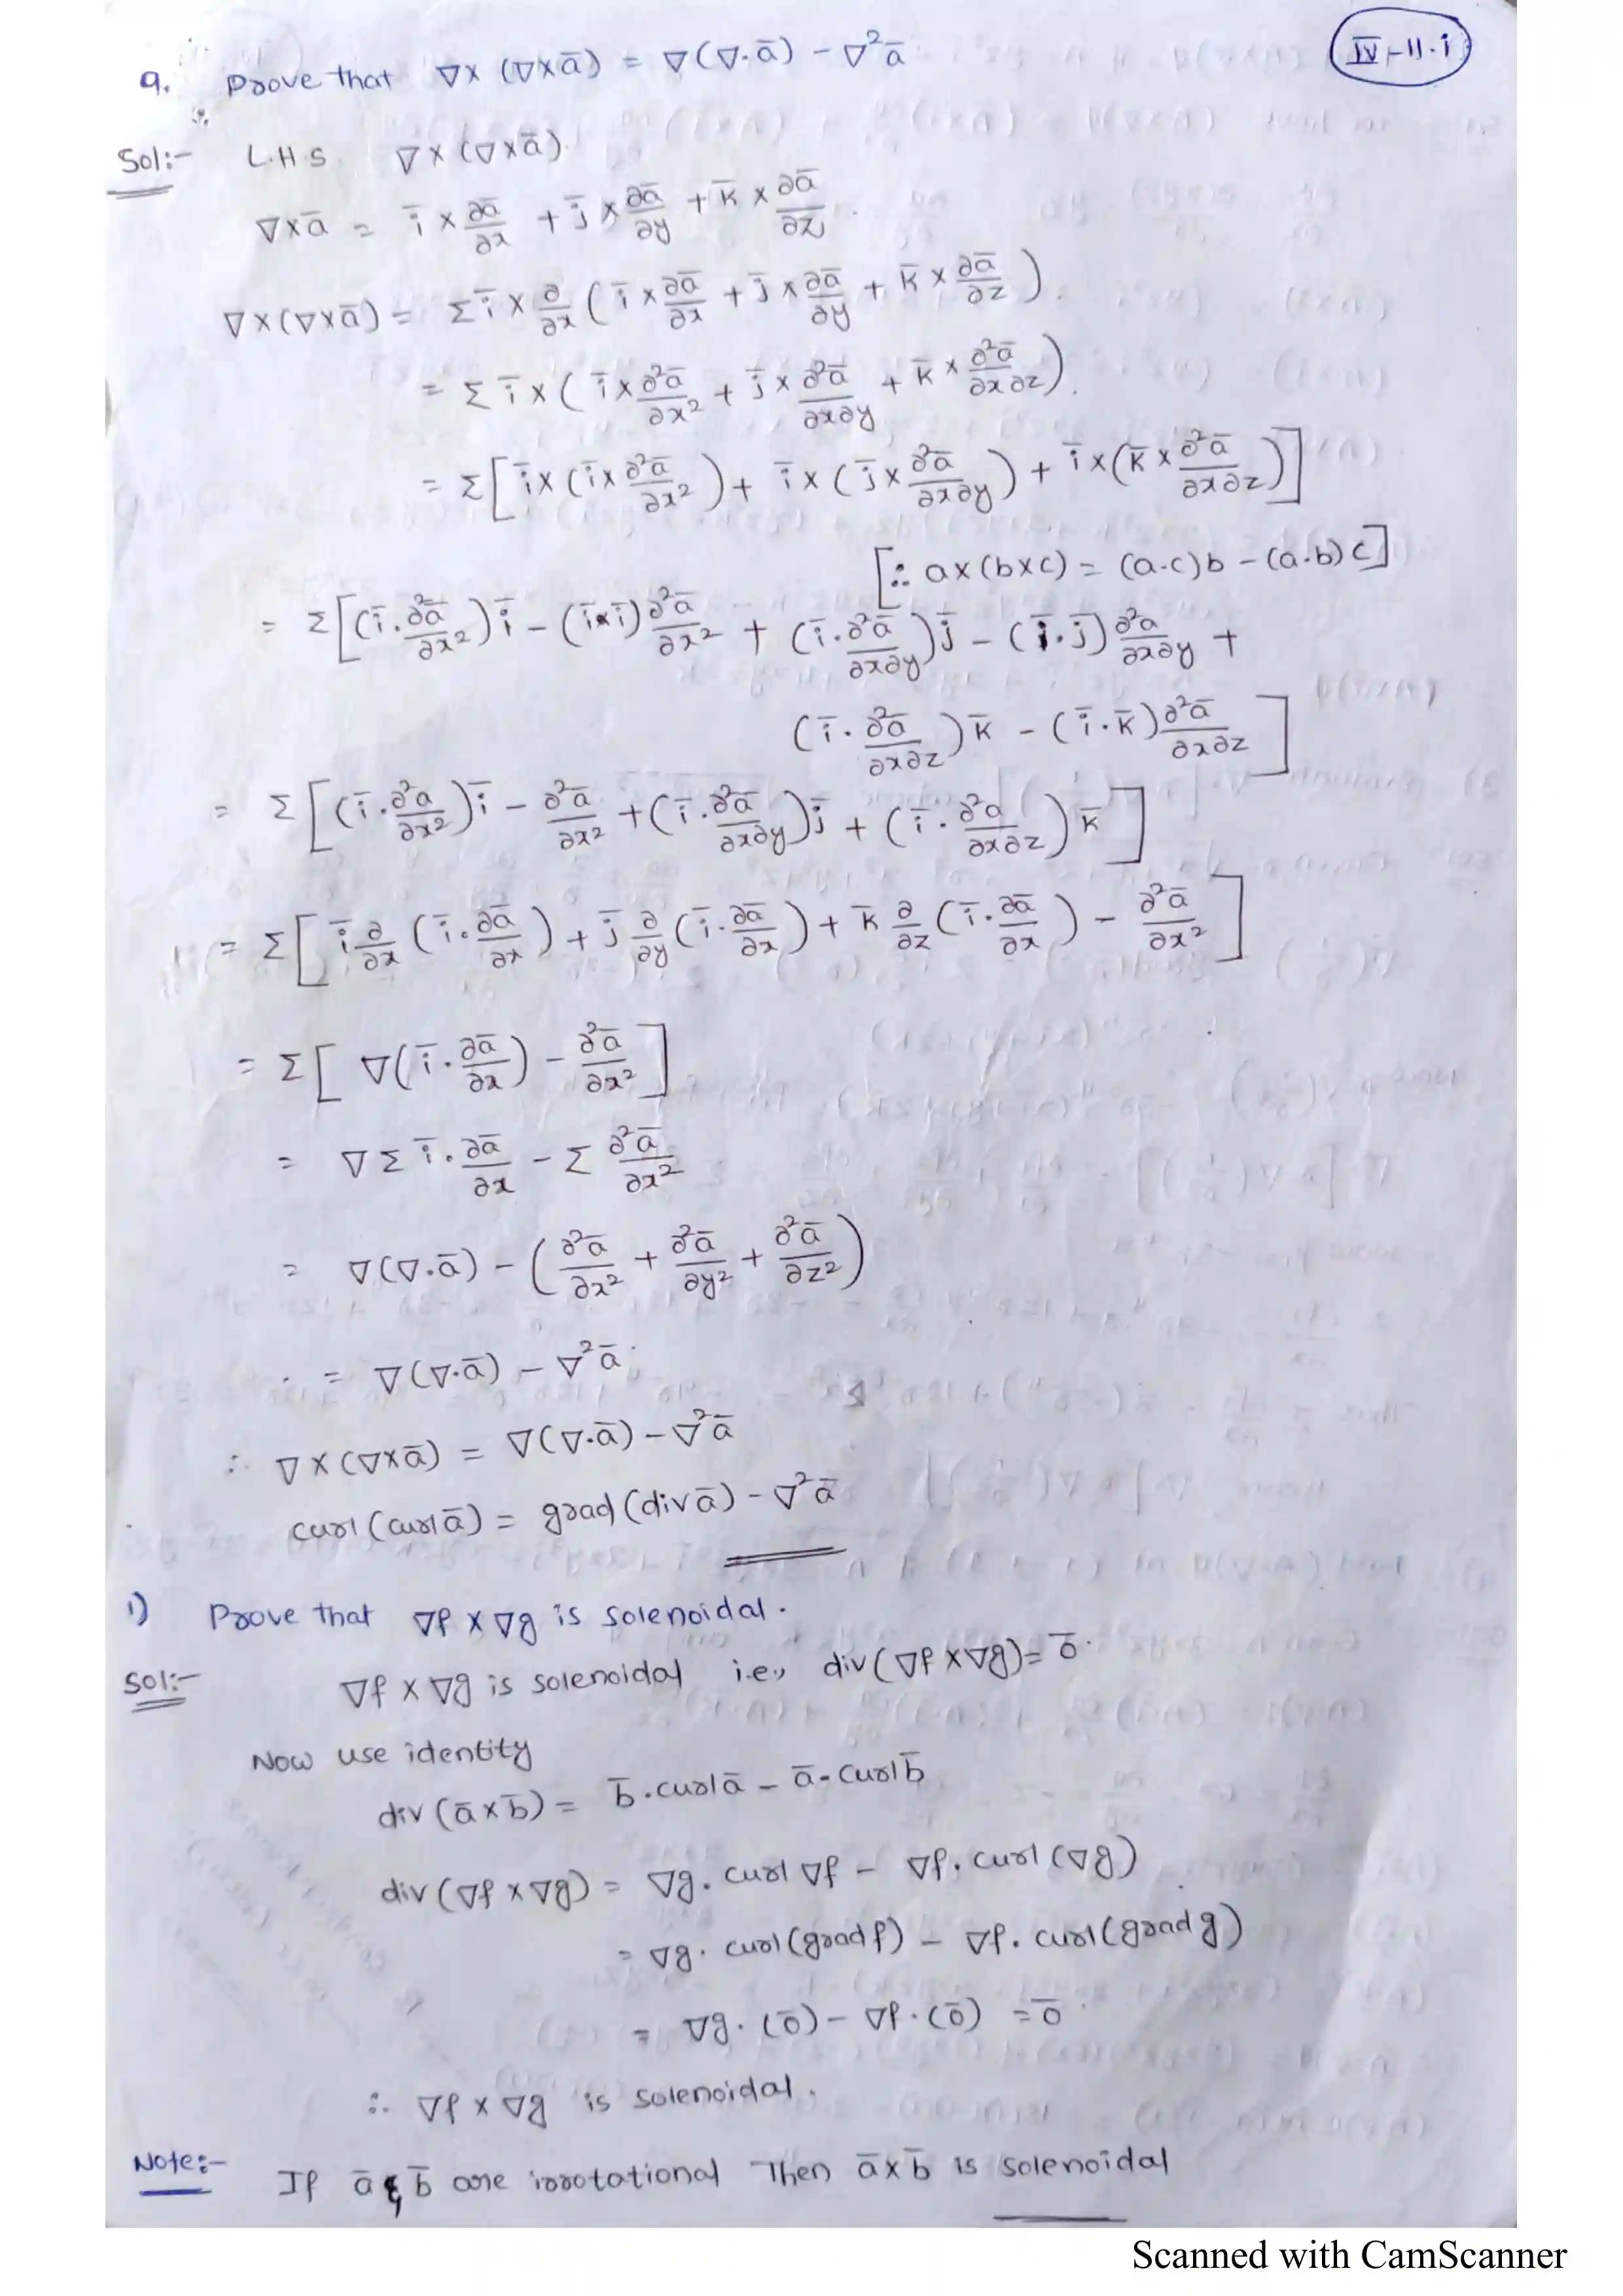 IV-11.i
9. Prove that ∇×(∇×ā) = ∇(∇.ā) - ∇²ā
Sol:- L.H.S ∇×(∇×ā).
∇×ā = ī × ∂ā/∂x + j̄ × ∂ā/∂y + k̄ × ∂ā/∂z.
∇×(∇×ā) = Σ ī × ∂/∂x (ī × ∂ā/∂x + j̄ × ∂ā/∂y + k̄ × ∂ā/∂z).
= Σ ī × (ī × ∂²ā/∂x² + j̄ × ∂²ā/∂x∂y + k̄ × ∂²ā/∂x∂z).
= Σ[ī × (ī × ∂²ā/∂x²) + ī × (j̄ × ∂²ā/∂x∂y) + ī × (k̄ × ∂²ā/∂x∂z)]
[∵ a×(b×c) = (a.c)b - (a.b)c]
= Σ[(ī.∂²ā/∂x²)ī - (ī.ī)∂²ā/∂x² + (ī.∂²ā/∂x∂y)j̄ - (ī.j̄)∂²a/∂x∂y +
(ī.∂²ā/∂x∂z)k̄ - (ī.k̄)∂²ā/∂x∂z]
= Σ[(ī.∂²a/∂x²)ī - ∂²ā/∂x² + (ī.∂²ā/∂x∂y)j̄ + (ī.∂²a/∂x∂z)k̄]
= Σ[ī ∂/∂x (ī.∂ā/∂x) + j̄ ∂/∂y (ī.∂ā/∂x) + k̄ ∂/∂z (ī.∂ā/∂x) - ∂²ā/∂x²]
= Σ[∇(ī.∂ā/∂x) - ∂²ā/∂x²]
= ∇ Σ ī.∂ā/∂x - Σ ∂²ā/∂x²
= ∇(∇.ā) - (∂²ā/∂x² + ∂²ā/∂y² + ∂²ā/∂z²)
= ∇(∇.ā) - ∇²ā
∴ ∇×(∇×ā) = ∇(∇.ā) - ∇²ā
curl(curl ā) = grad(div ā) - ∇²ā
1) Prove that ∇f × ∇g is solenoidal.
Sol:- ∇f × ∇g is solenoidal i.e., div(∇f × ∇g) = ō.
Now use identity
div(ā×b̄) = b̄.curl ā - ā.curl b̄
div(∇f × ∇g) = ∇g.curl ∇f - ∇f.curl(∇g)
= ∇g.curl(grad f) - ∇f.curl(grad g)
= ∇g.(ō) - ∇f.(ō) = ō
∴ ∇f × ∇g is solenoidal.
Note:- If ā & b̄ are irrotational Then ā×b̄ is solenoidal
Scanned with CamScanner